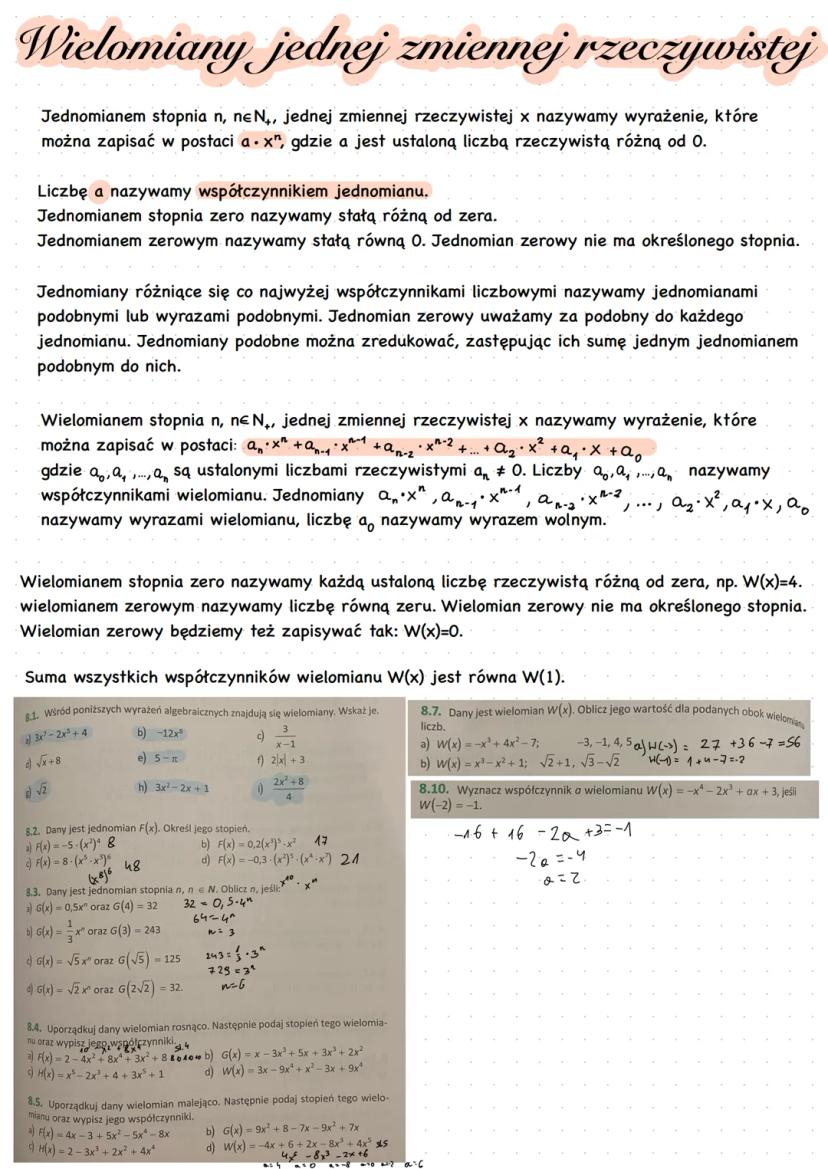 Wielomiany jednej zmiennej rzeczywistej
Jednomianem stopnia n, n∈N₊, jednej zmiennej rzeczywistej x nazywamy wyrażenie, które
można zapisać w postaci a · xⁿ, gdzie a jest ustaloną liczbą rzeczywistą różną od 0.
Liczbę a nazywamy współczynnikiem jednomianu.
Jednomianem stopnia zero nazywamy stałą różną od zera.
Jednomianem zerowym nazywamy stałą równą 0. Jednomian zerowy nie ma określonego stopnia.
Jednomiany różniące się co najwyżej współczynnikami liczbowymi nazywamy jednomianami
podobnymi lub wyrazami podobnymi. Jednomian zerowy uważamy za podobny do każdego
jednomianu. Jednomiany podobne można zredukować, zastępując ich sumę jednym jednomianem
podobnym do nich.
Wielomianem stopnia n, n∈N₊, jednej zmiennej rzeczywistej x nazywamy wyrażenie, które
można zapisać w postaci: aₙ·xⁿ + aₙ₋₁·xⁿ⁻¹ + aₙ₋₂·xⁿ⁻² + ... + a₂·x² + a₁·x + a₀
gdzie a₀, a₁, ..., aₙ są ustalonymi liczbami rzeczywistymi aₙ ≠ 0. Liczby a₀, a₁, ..., aₙ nazywamy
współczynnikami wielomianu. Jednomiany aₙ·xⁿ, aₙ₋₁·xⁿ⁻¹, aₙ₋₂·xⁿ⁻², ..., a₂·x², a₁·x, a₀
nazywamy wyrazami wielomianu, liczbę a₀ nazywamy wyrazem wolnym.
Wielomianem stopnia zero nazywamy każdą ustaloną liczbę rzeczywistą różną od zera, np. W(x)=4.
wielomianem zerowym nazywamy liczbę równą zeru. Wielomian zerowy nie ma określonego stopnia.
Wielomian zerowy będziemy też zapisywać tak: W(x)=0.
Suma wszystkich współczynników wielomianu W(x) jest równa W(1).
8.1. Wśród poniższych wyrażeń algebraicznych znajdują się wielomiany. Wskaż je.
a) 3x⁷ − 2x⁵ + 4 b) −12x⁸ c) 3/(x−1)
d) √x + 8 e) 5 − π f) 2|x| + 3
g) √2 h) 3x² − 2x + 1 i) (2x² + 8)/4
8.2. Dany jest jednomian F(x). Określ jego stopień.
a) F(x) = −5 · (x²)⁴ 8 b) F(x) = 0,2(x³)⁵ · x² 17
c) F(x) = 8 · (x⁵ · x³)⁶ 48 d) F(x) = −0,3 · (x²)⁵ · (x⁴ · x⁷) 21
(x⁸)⁶ x¹⁰ · x¹¹
8.3. Dany jest jednomian stopnia n, n ∈ N. Oblicz n, jeśli:
a) G(x) = 0,5xⁿ oraz G(4) = 32 32 = 0,5·4ⁿ
64 = 4ⁿ
b) G(x) = 1/3 xⁿ oraz G(3) = 243 n = 3
c) G(x) = √5 xⁿ oraz G(√5) = 125 243 = 1/3 · 3ⁿ
729 = 3ⁿ
d) G(x) = √2 xⁿ oraz G(2√2) = 32. n=6
8.4. Uporządkuj dany wielomian rosnąco. Następnie podaj stopień tego wielomia-
nu oraz wypisz jego współczynniki.
st.4
a) F(x) = 2 − 4x² + 8x⁴ + 3x² + 8 b) G(x) = x − 3x³ + 5x + 3x³ + 2x²
c) H(x) = x⁵ − 2x³ + 4 + 3x⁵ + 1 d) W(x) = 3x − 9x⁴ + x² − 3x + 9x⁴
8.5. Uporządkuj dany wielomian malejąco. Następnie podaj stopień tego wielo-
mianu oraz wypisz jego współczynniki.
a) F(x) = 4x − 3 + 5x² − 5x⁴ − 8x b) G(x) = 9x² + 8 − 7x − 9x² + 7x
c) H(x) = 2 − 3x³ + 2x² + 4x⁴ d) W(x) = −4x + 6 + 2x − 8x³ + 4x⁵ st5
4x⁵ − 8x³ − 2x + 6
a=4 a=0 a=-8 a=0 a=-2 a=6
8.7. Dany jest wielomian W(x). Oblicz jego wartość dla podanych obok wielomianu
liczb.
a) W(x) = −x³ + 4x² − 7; −3, −1, 4, 5 a) W(-3) = 27 + 36 − 7 = 56
b) W(x) = x³ − x² + 1; √2 + 1, √3 − √2 W(-1) = 1 + 4 − 7 = -2
8.10. Wyznacz współczynnik a wielomianu W(x) = −x⁴ − 2x³ + ax + 3, jeśli
W(−2) = −1.
−16 + 16 − 2a + 3 = −1
−2a = −4
a = 2